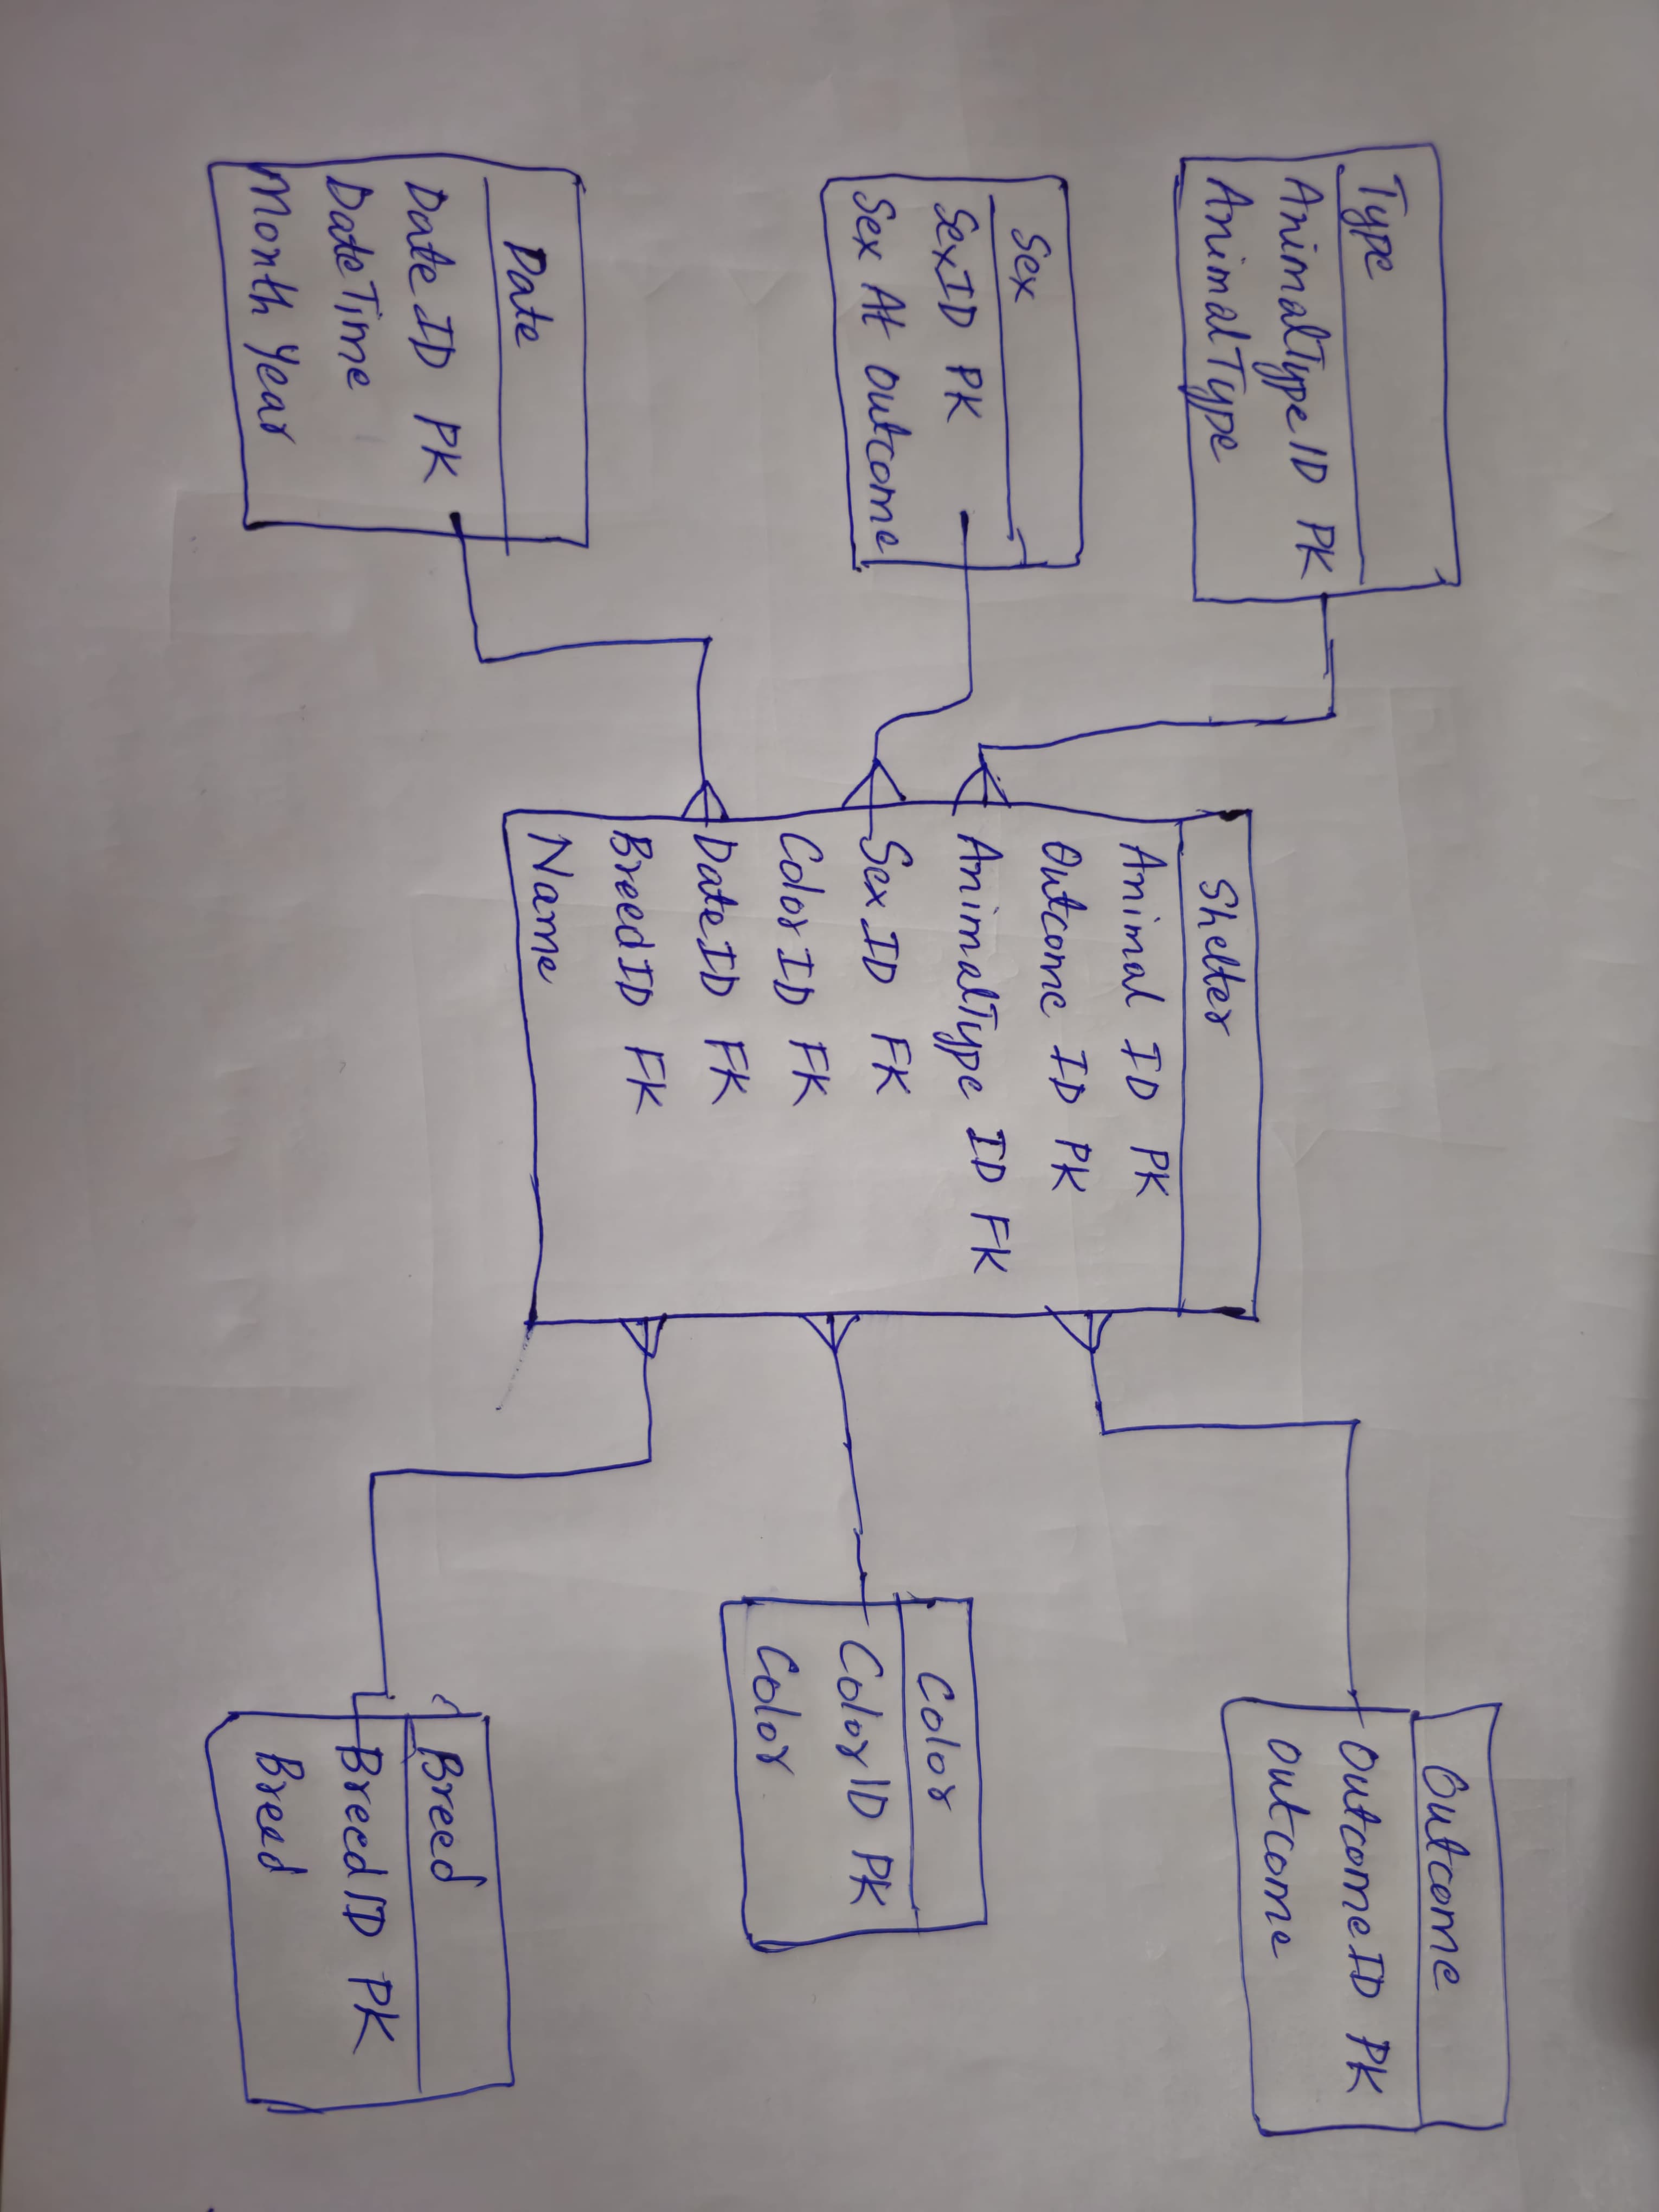 Type
AnimalTypeID PK
AnimalType
Sex
SexID PK
Sex At Outcome
Date
DateID PK
DateTime
Month Year
Shelter
Animal ID PK
Outcome ID PK
AnimalType ID FK
SexID FK
ColorID FK
DateID FK
BreedID FK
Name
Outcome
OutcomeID PK
Outcome
Color
ColorID PK
Color
Breed
BreedID PK
Breed